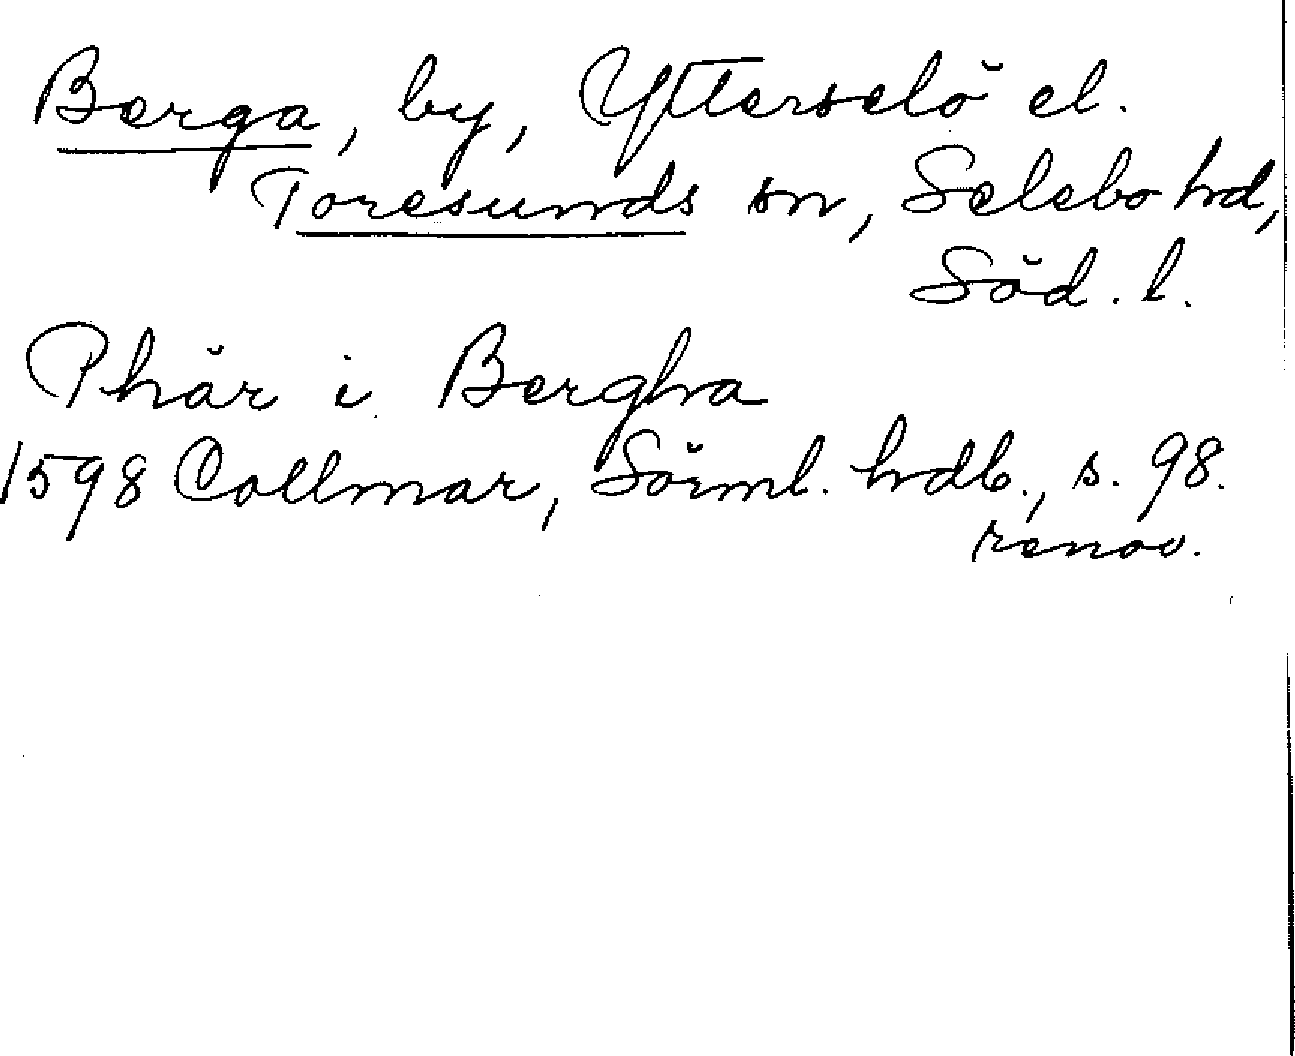 Berga, by, Ytterselö el.
Toresunds sn, Selebo hd,
Söd. l.
Phär i Bergha
1598 Collmar, Sörml. hdb., s. 98.
renov.